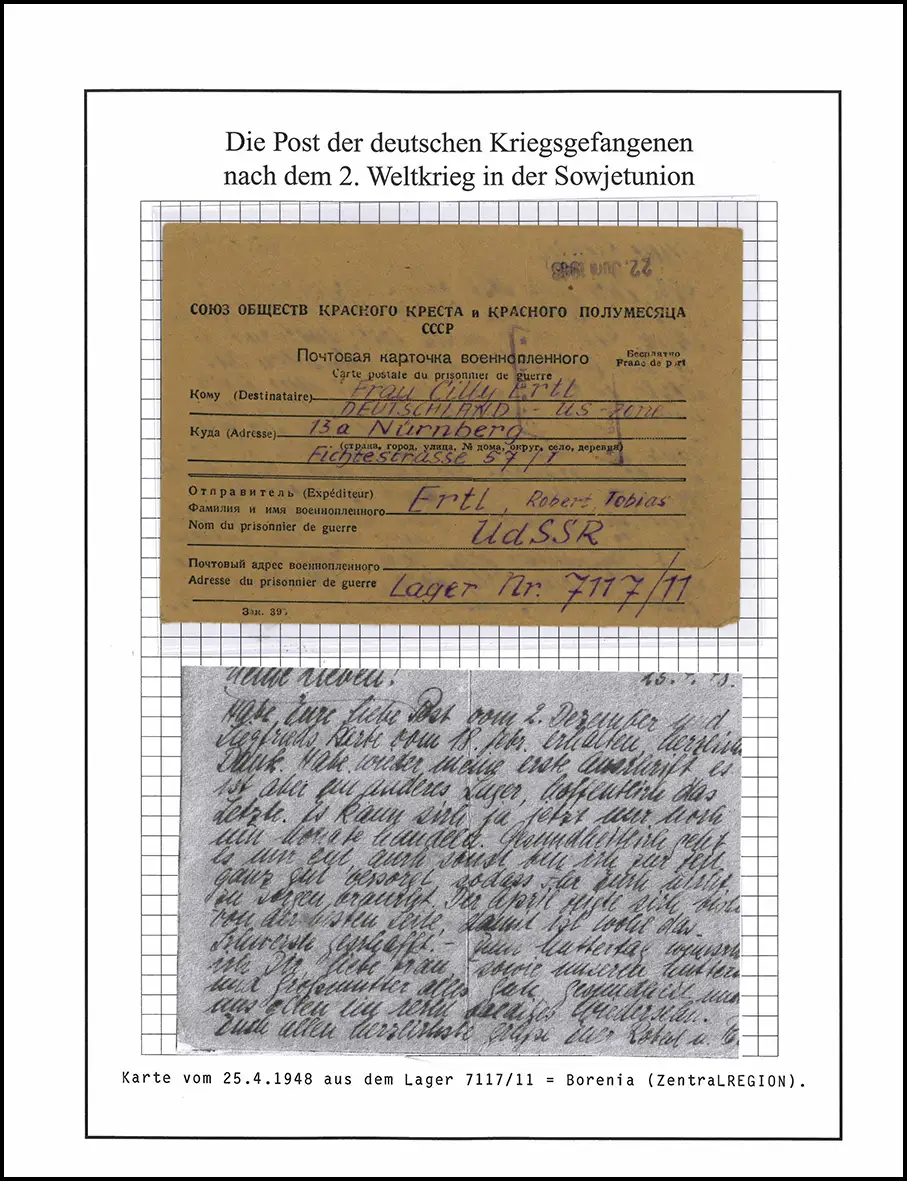 Die Post der deutschen Kriegsgefangenen
nach dem 2. Weltkrieg in der Sowjetunion
22. Juni 1948
СОЮЗ ОБЩЕСТВ КРАСНОГО КРЕСТА и КРАСНОГО ПОЛУМЕСЯЦА
СССР
Почтовая карточка военнопленного
Бесплатно
Carte postale du prisonnier de guerre
Franc de port
Кому (Destinataire) Frau Cilly Ertl
DEUTSCHLAND - US-Zone
Куда (Adresse) 13a Nürnberg
(страна, город, улица, № дома, округ, село, деревня)
Fichtestrasse 57/I
Отправитель (Expéditeur)
Фамилия и имя военнопленного Ertl, Robert Tobias
Nom du prisonnier de guerre UdSSR
Почтовый адрес военнопленного
Adresse du prisonnier de guerre Lager Nr. 7117/11
Зак. 39
Meine Lieben! 25.4.48.
Habe Eure liebe Post vom 2. Dezember und
Siegfrieds Karte vom 18. Febr. erhalten, herzlichen
Dank. Habe wieder meine erste Anschrift es
ist aber ein anderes Lager, hoffentlich das
Letzte. Es kann sich ja jetzt nur noch
um Monate handeln. Gesundheitlich geht
es mir gut, auch sonst bin ich zur Zeit
ganz gut versorgt, sodass Ihr Euch nicht
zu sorgen braucht. Der April zeigte sich
von der besten Seite, damit ist wohl das
Schwerste geschafft. - Zum Muttertag wünsche
ich Dir, liebe Frau, sowie unseren Müttern
und Grossmutter alles Gute, Gesundheit und
uns allen ein recht baldiges Wiedersehn.
Euch allen herzlichste Grüsse Euer Robert
Karte vom 25.4.1948 aus dem Lager 7117/11 = Borenia (ZentraLREGION).